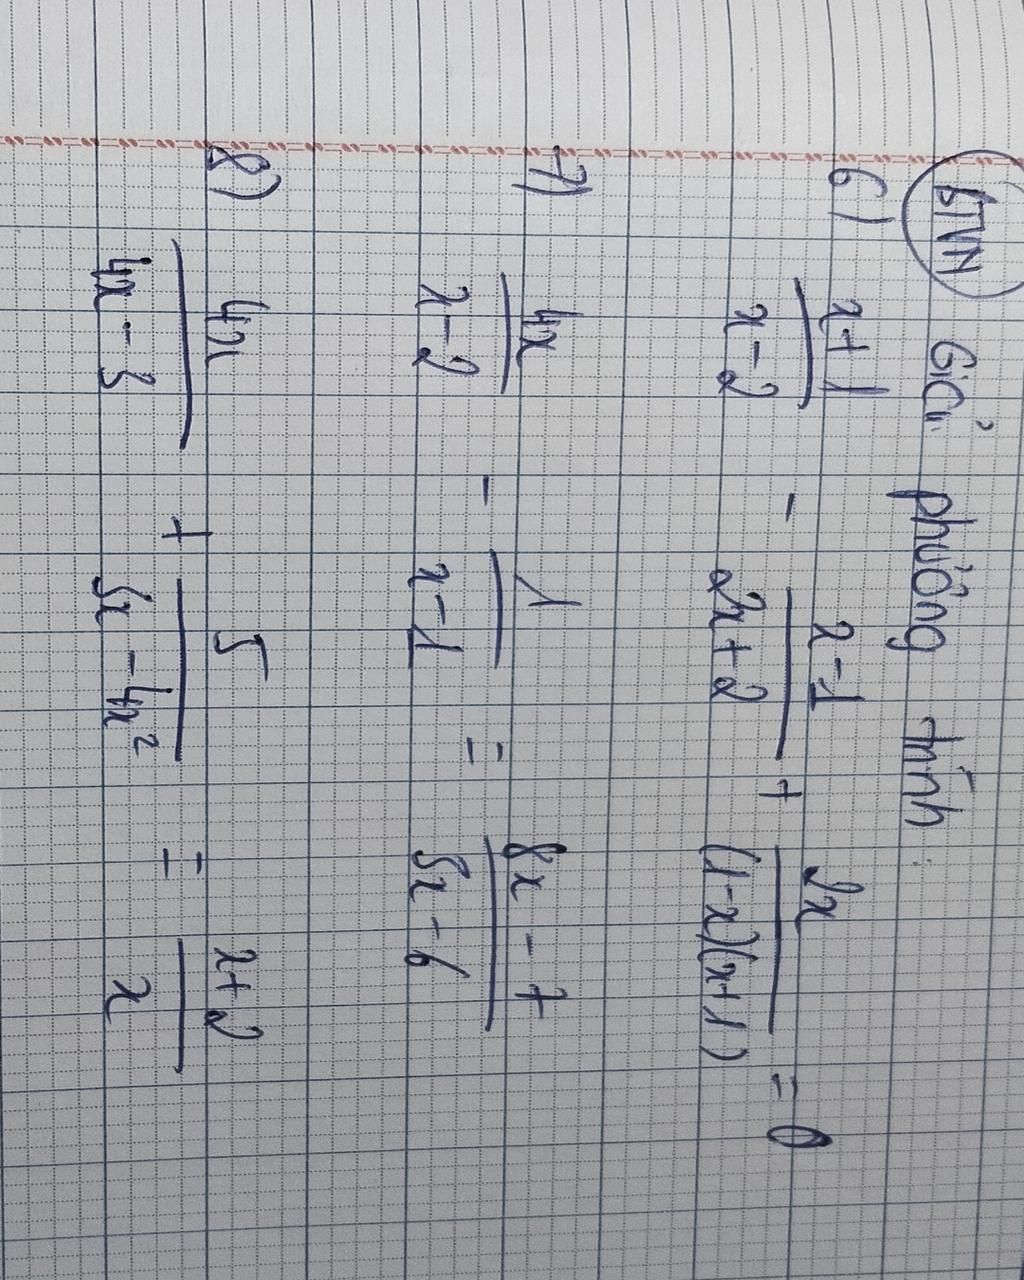 BTVN Giải phương trình:
6) \frac{x+1}{x-2} - \frac{x-1}{2x+2} + \frac{2x}{(1-x)(x+1)} = 0
7) \frac{4x}{x-2} - \frac{1}{x-1} = \frac{8x-7}{5x-6}
8) \frac{4x}{4x-3} + \frac{5}{5x-4x^2} = \frac{x+2}{x}